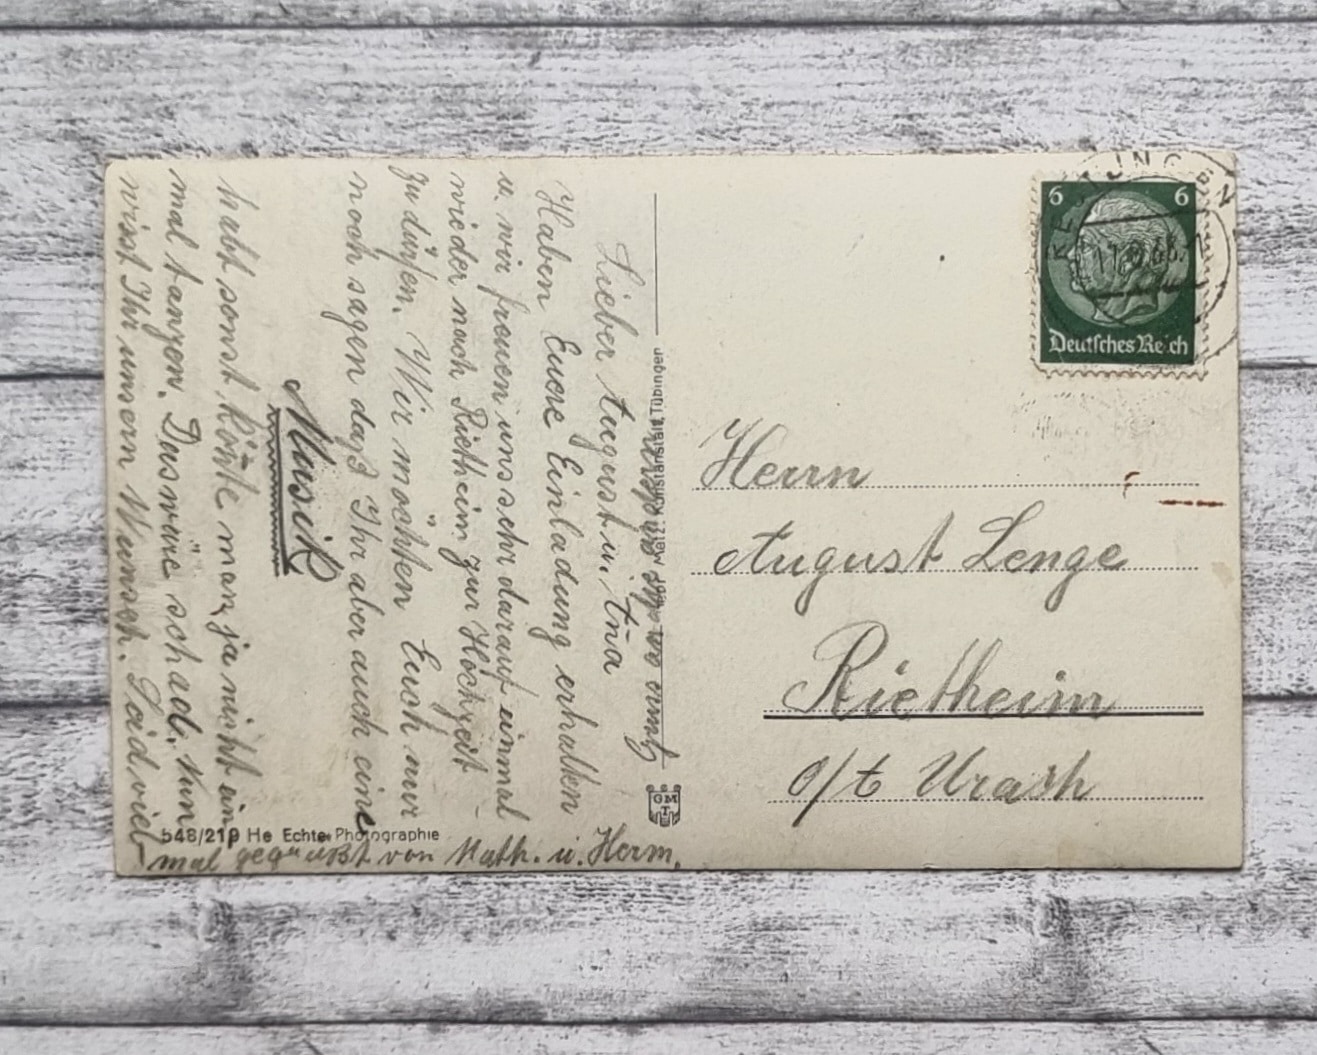 Lieber August u. Ina
Haben Euere Einladung erhalten
u. wir freuen uns sehr darauf einmal
wieder nach Rietheim zur Hochzeit
zu dürfen. Wir möchten Euch nur
noch sagen daß Ihr aber auch eine
Musik
habt sonst könte man ja nicht ein
mal tanzen. Das wäre schad. Nun
wisst Ihr unsern Wunsch. Seid viel
mal gegrüßt von Math. u. Herm.
548/219 He Echte Photographie
Metz. Kunstanstalt, Tübingen
GM
T
6 6
Deutsches Reich
Herrn
August Lenge
Rietheim
o/t Urach